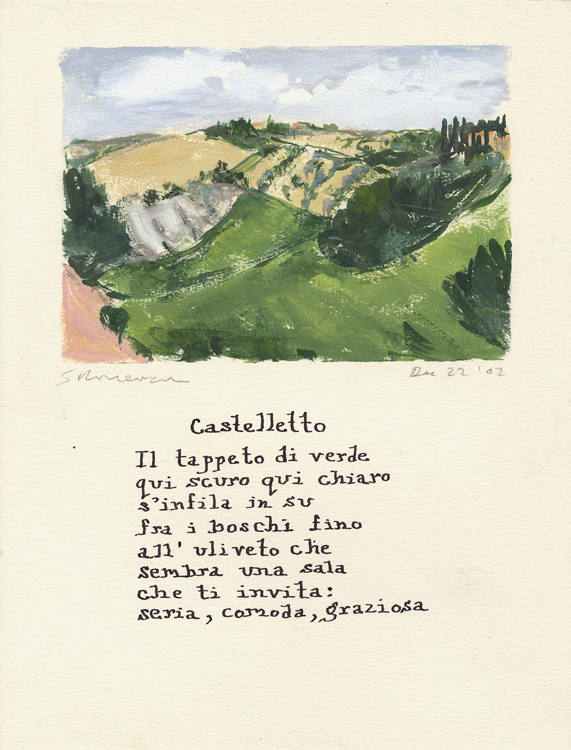 Dec 22 '02
Castelletto
Il tappeto di verde
qui scuro qui chiaro
s'infila in su
fra i boschi fino
all' uliveto che
sembra una sala
che ti invita:
seria, comoda, graziosa